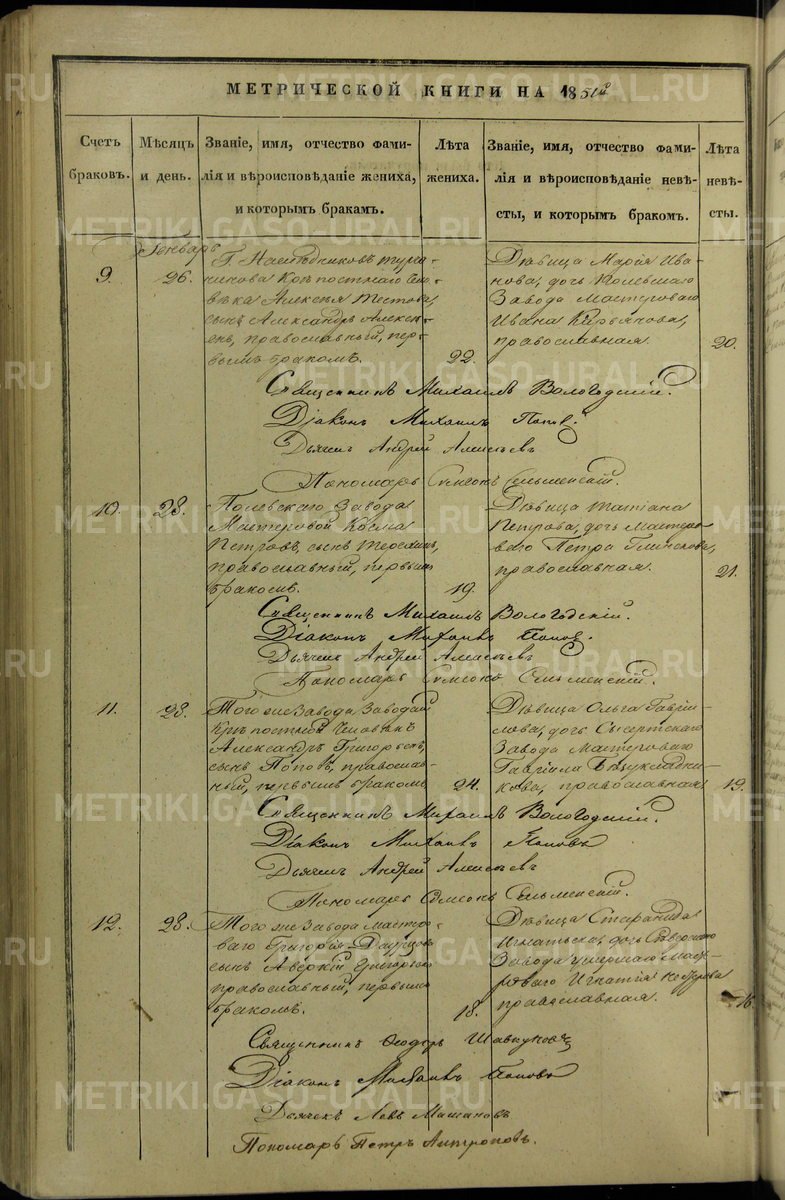 МЕТРИЧЕСКОЙ КНИГИ НА 1851й
Счетъ браковъ.
Мѣсяцъ и день.
Званіе, имя, отчество фами-
лія и вѣроисповѣданіе жениха,
и которымъ бракамъ.
Лѣта жениха.
Званіе, имя, отчество фами-
лія и вѣроисповѣданіе невѣ-
сты, и которымъ бракомъ.
Лѣта невѣ-
сты.
Генварь
9.
26.
Г. Наслѣдниковъ Турча-
нинова Крѣпостнаго Чело-
вѣка Алексѣя
сынъ Александръ Алексѣ-
евъ, православный, пер-
вымъ бракомъ.
22.
Дѣвица Марія Ива-
нова, дочь Полевскаго
Завода Мастероваго
Ивана
православная.
20.
Священникъ Михаилъ Вологодскій.
Діаконъ Михаилъ Попов.
Дьячекъ Андрей Алексѣевъ
Пономарь Симеонъ
10.
28.
Полевскаго Завода
Мастеровой Косма
Петровъ, сынъ
православный, первымъ
бракомъ.
19.
Дѣвица Татіана
Петрова, дочь Мастеро-
ваго Петра
православная.
21.
Священникъ Михаилъ Вологодскій.
Діаконъ Михаилъ Попов.
Дьячекъ Андрей Алексѣевъ
Пономарь Симеонъ
11.
28.
Того же Завода Заводскій
Крѣпостной Человѣкъ
Александръ Григорьевъ,
сынъ Поповъ, православ-
ный, первымъ бракомъ
24.
Дѣвица Ольга Гаврі-
лова, дочь Сысертскаго
Завода Мастероваго
Гавріила
православная
19.
Священникъ Михаилъ Вологодскій.
Діаконъ Михаилъ Поповъ
Дьячекъ Андрей Алексѣевъ
Пономарь Симеонъ
12.
28.
Того же Завода Мастеро-
ваго Григорія
сынъ Аверкій Григорьевъ
православный, первымъ
бракомъ.
18.
Дѣвица Стефанида
Игнатьева, дочь Сѣверскаго
Завода умершаго Масте-
роваго Игнатія
православная.
16.
Священникъ Ѳеодоръ
Діаконъ Михаилъ Поповъ
Дьячекъ Левъ
Пономарь Петръ Антроповъ.
METRIKI.GASO-URAL.RU